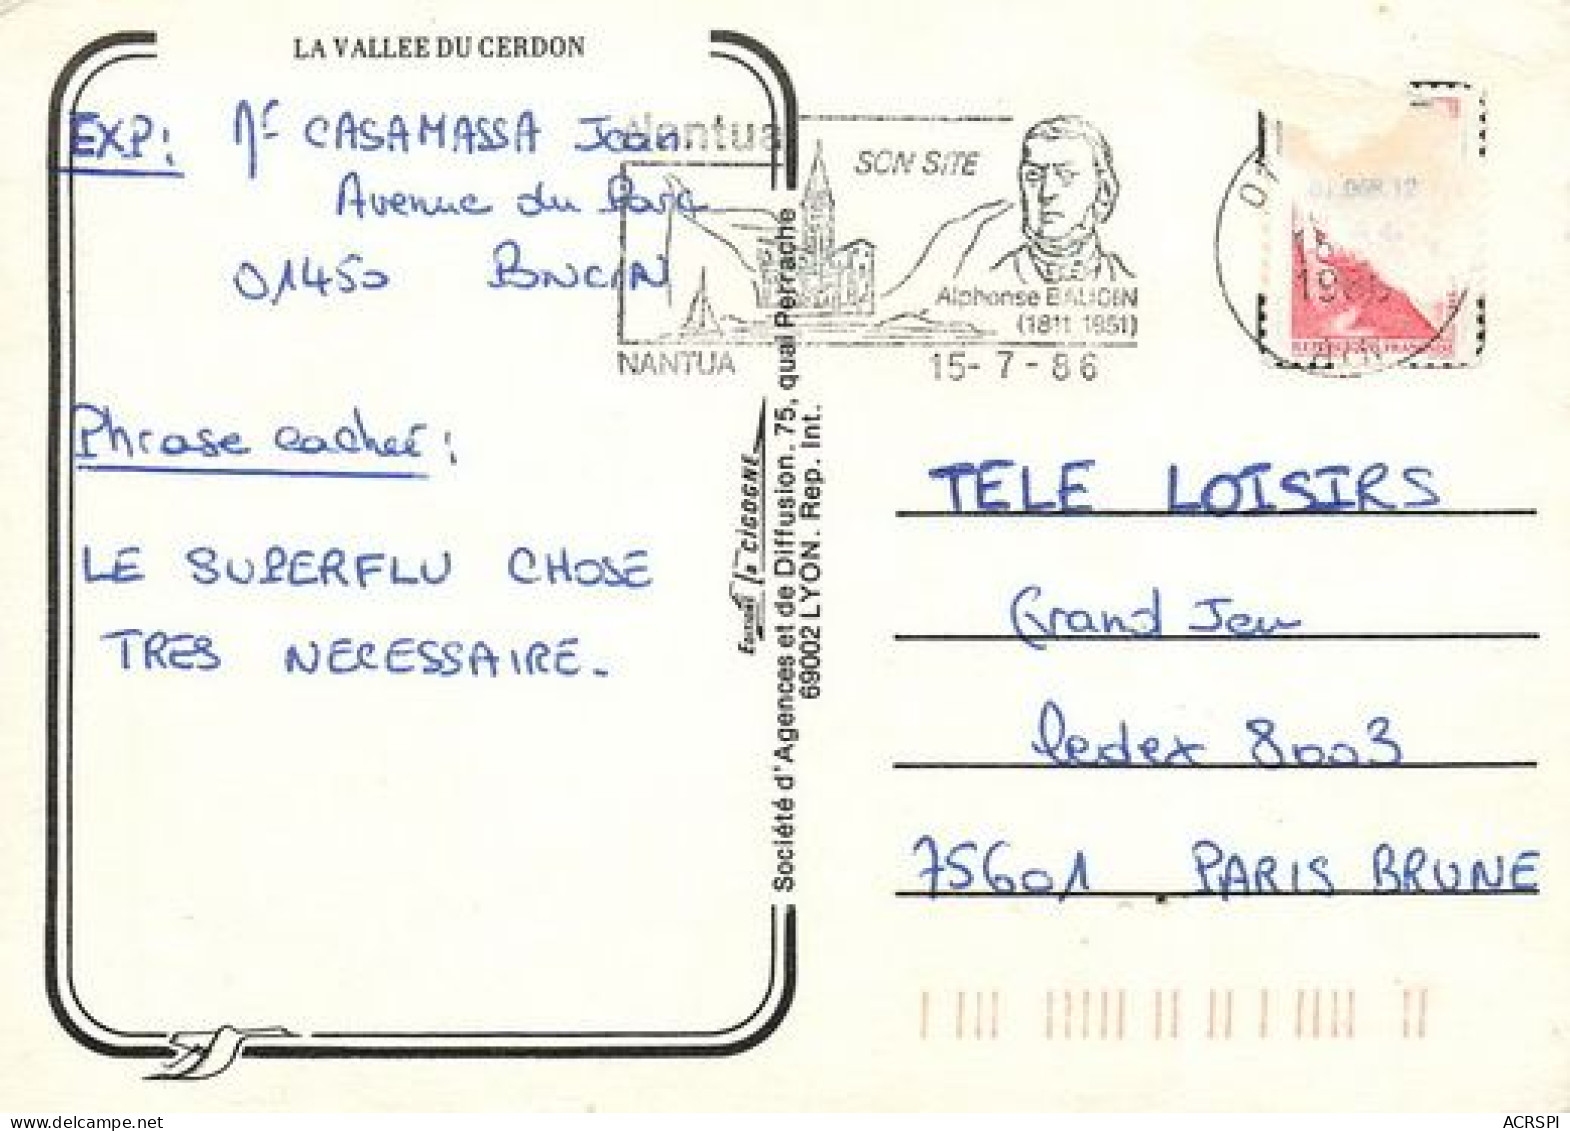 LA VALLEE DU CERDON
EXP: Mr CASAMASSA Jean
Avenue du Parc
01450 PONCIN
Phrase cachée :
LE SUPERFLU CHOSE
TRES NECESSAIRE.
Nantua
SON SITE
Alphonse BAUDIN
(1811 1851)
NANTUA
15- 7 - 86
01
15
19
AIN
REPUBLIQUE FRANCAISE
Editions la CIGOGNE
Société d'Agences et de Diffusion. 75, quai Perrache
69002 LYON. Rep. Int.
TELE LOISIRS
Grand Jeu
Cedex 8003
75601 PARIS BRUNE
ACRSPI